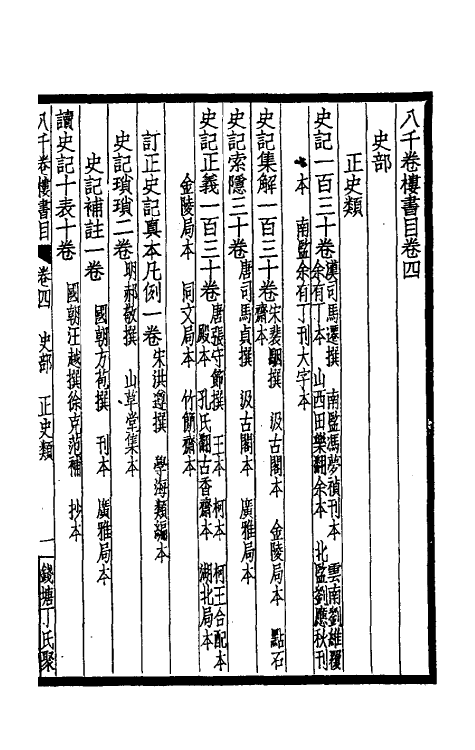 八千卷樓書目卷四
史部
正史類
史記一百三十卷漢司馬遷撰 南監馮夢禎刊本 雲南劉雄覆余有丁本 山西田樂翻余本 北監劉應秋刊
本 南監余有丁刊大字本
史記集解一百三十卷宋裴駰撰 汲古閣本 金陵局本 點石齋本
史記索隱三十卷唐司馬貞撰 汲古閣本 廣雅局本
史記正義一百三十卷唐張守節撰 王本 柯本 柯王合配本 殿本 孔氏翻古香齋本 湖北局本
金陵局本 同文局本 竹簡齋本
訂正史記真本凡例一卷宋洪遵撰 學海類編本
史記瑣瑣二卷明郝敬撰 山草堂集本
史記補註一卷 國朝方苞撰 刊本 廣雅局本
讀史記十表十卷 國朝汪越撰徐克范補 抄本
八千卷樓書目 卷四 史部 正史類 一 錢塘丁氏聚